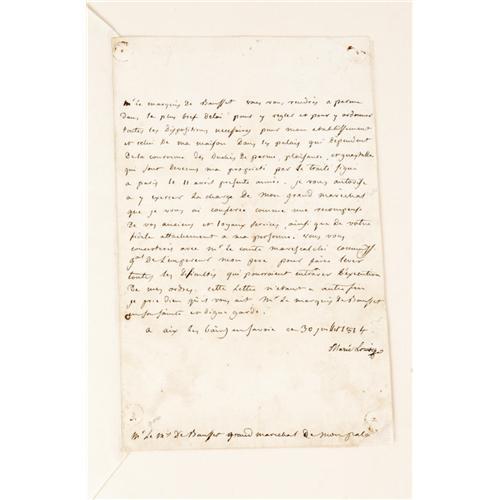 Mr Le marquis de Bausset vous vous rendrés a parme
dans le plus bref délai pour y regler et pour y ordonner
toutes les dispositions necessaires pour mon etablissement
et celui de ma maison dans les palais qui dependent
de la couronne des Duchés de parme plaisance, et guastalle
qui sont devenus ma propriété par le traité signé
a paris le 11 avril presente année. je vous autorise
a y exercer la charge de mon grand marechal
que je vous ai conferée comme une recompense
de vos anciens et loyaux services, ainsi que de votre
fidele attachement a ma personne. vous vous
concerterés avec Mr le comte marescalchi
gal de L'empereur mon pere pour faire lever
toutes les difficultés qui pourraient entraver L'execution
de mes ordres. cette Lettre n'etant a autre fin
je prie dieu qu'il vous ait Mr Le marquis de Bausset
en sa sainte et digne garde.
a aix les bains en savoie ce 30 juillet 1814
Marie Louise
Mr Le Mis De Bausset grand marechal de mon palais